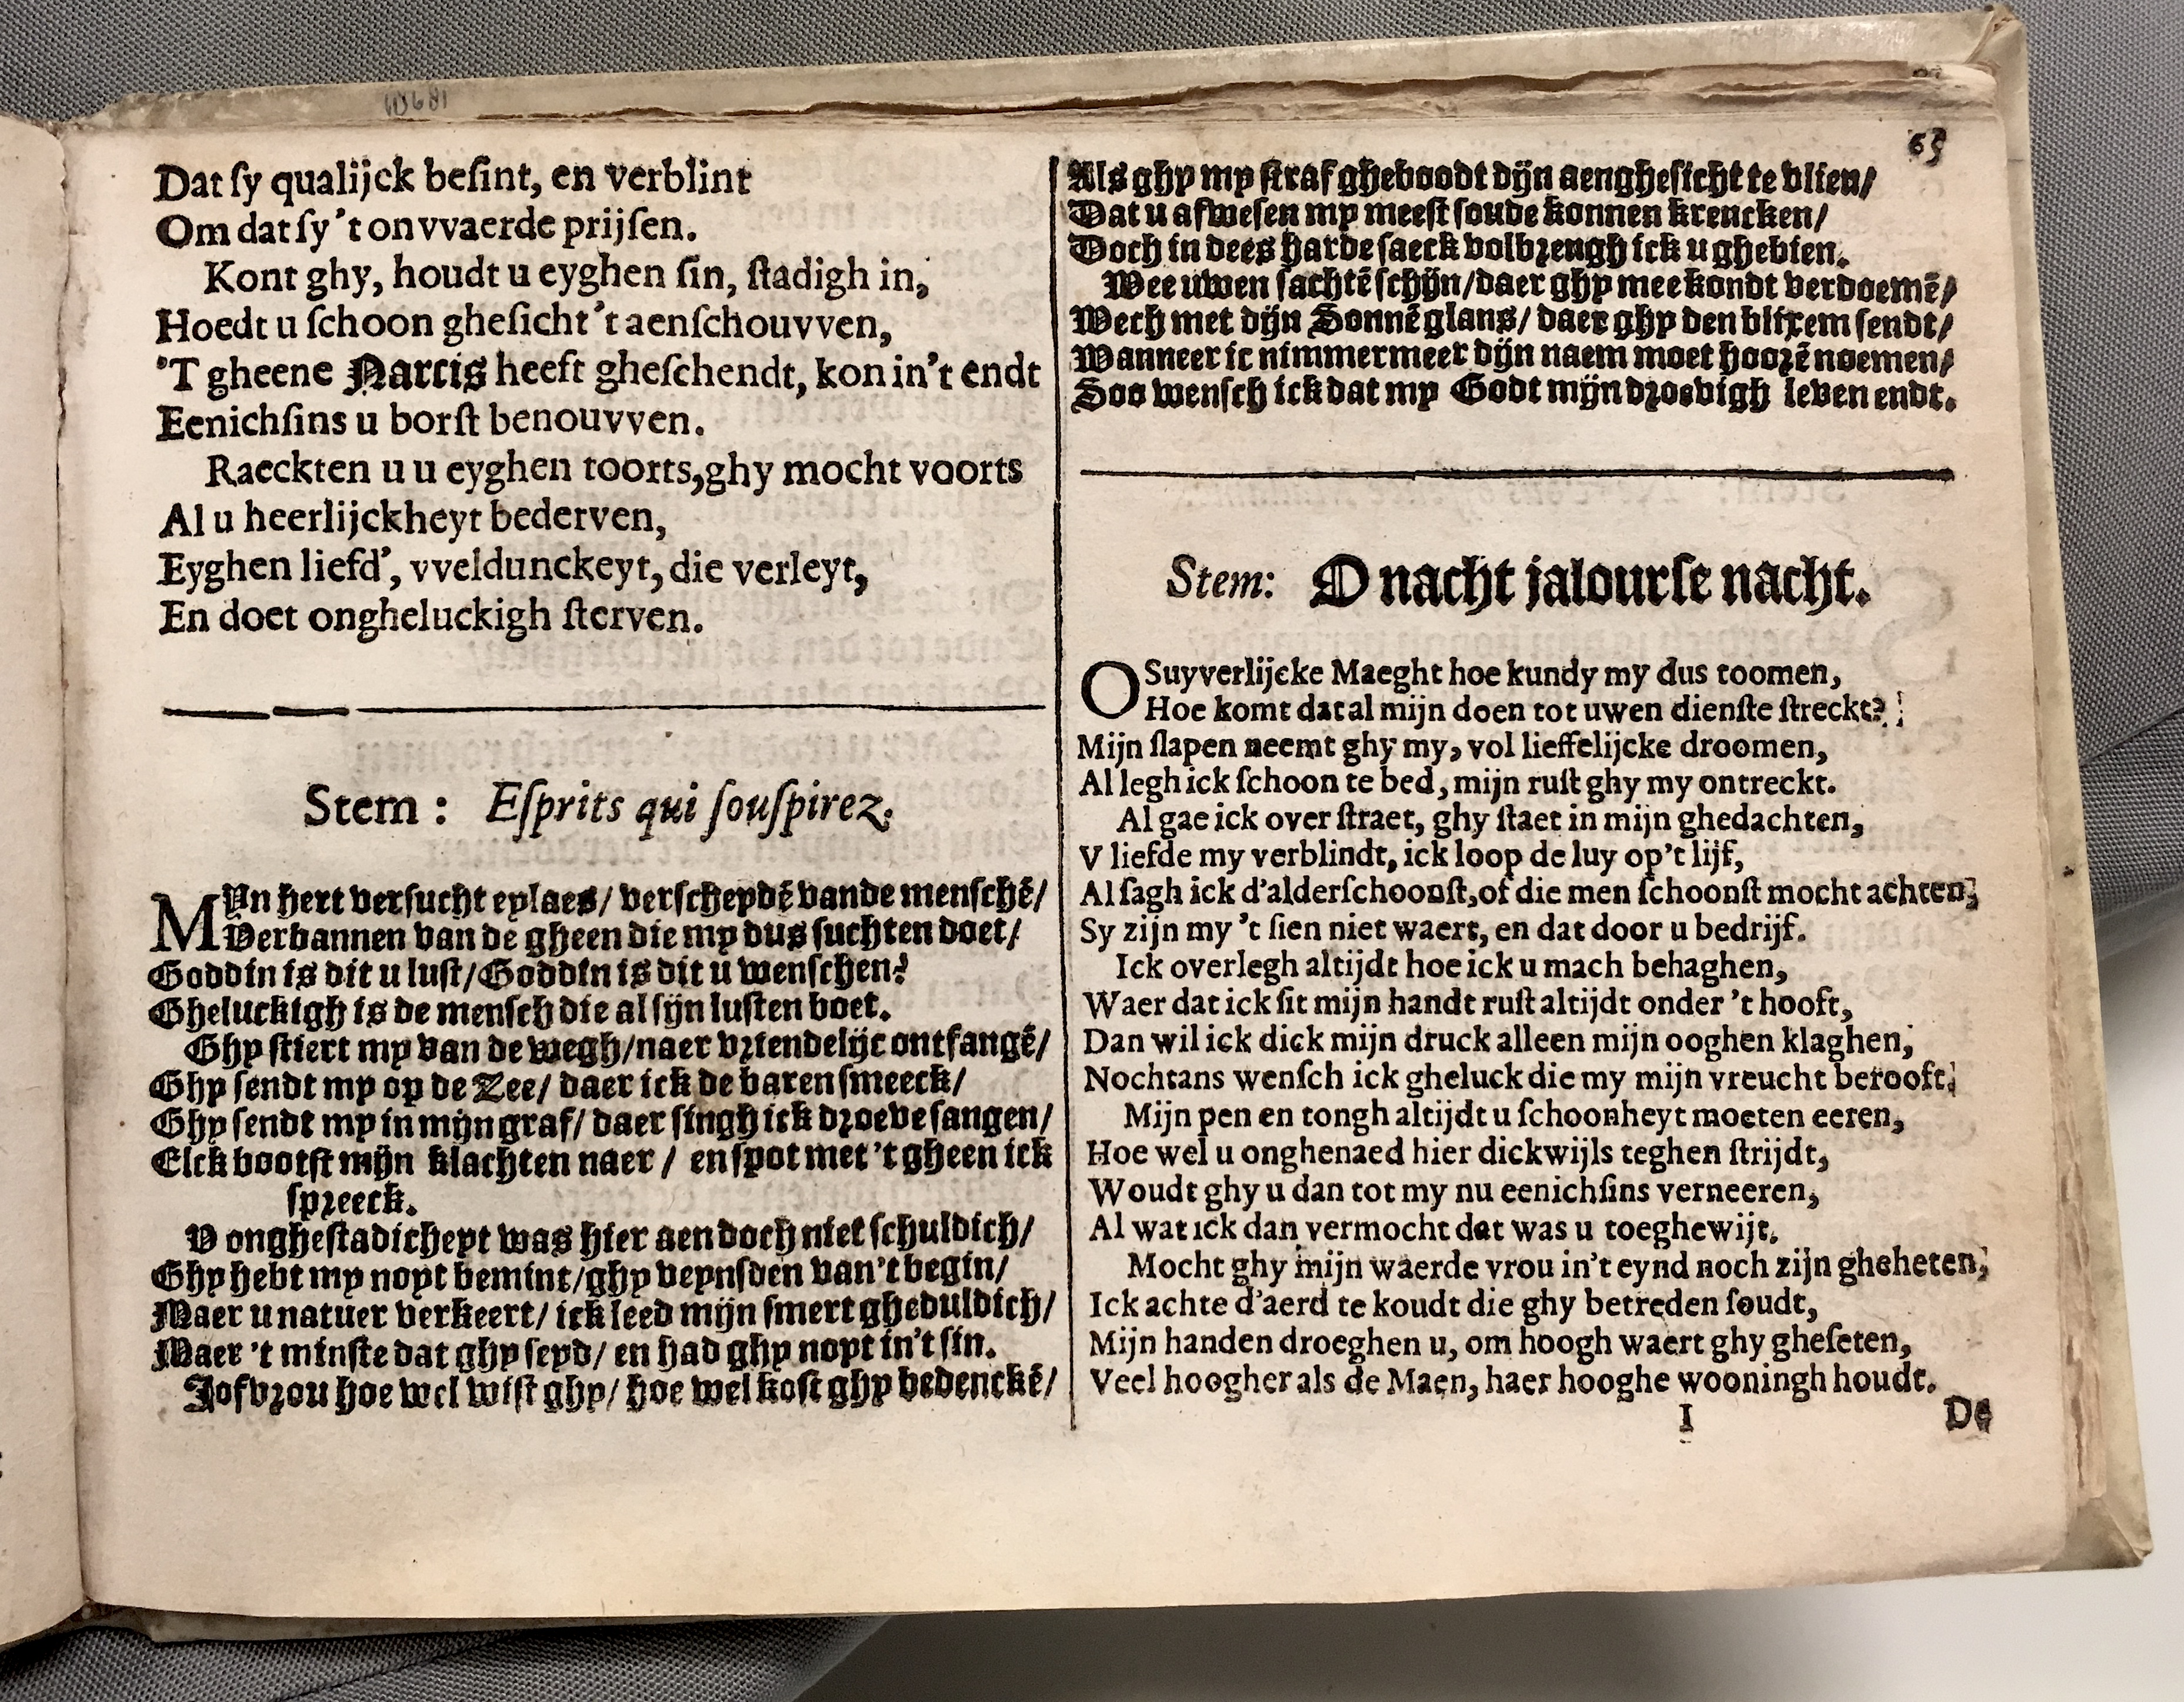 65
Dat ſy qualijck beſint, en verblint
Om dat ſy 't onvvaerde prijſen.
Kont ghy, houdt u eyghen ſin, ſtadigh in,
Hoedt u ſchoon gheſicht 't aenſchouvven,
'T gheene Narcis heeft gheſchendt, kon in't endt
Eenichſins u borſt benouvven.
Raeckten u u eyghen toorts, ghy mocht voorts
Al u heerlijckheyt bederven,
Eyghen liefd', vveldunckeyt, die verleyt,
En doet ongheluckigh ſterven.
Stem: Eſprits qui ſouſpirez.
MYn hert verſucht eylaes/ verſcheydē vande menſchē/
Verbannen van de gheen die my dus ſuchten doet/
Goddin is dit u luſt/ Goddin is dit u wenſchen?
Gheluckigh is de menſch die al ſijn luſten boet.
Ghy ſtiert my van de wegh/ naer vriendelijc ontfangē/
Ghy ſendt my op de Zee/ daer ick de baren ſmeeck/
Ghy ſendt my in mijn graf/ daer ſingh ick droeve ſangen/
Elck bootſt mijn klachten naer/ en ſpot met 't gheen ick
ſpreeck.
V ongheſtadicheyt was hier aen doch niet ſchuldich/
Ghy hebt my noyt bemint/ ghy veynſden van't begin/
Maer u natuer verkeert/ ick leed mijn ſmert gheduldich/
Maer 't minſte dat ghy ſeyd/ en had ghy noyt in't ſin.
Jofvrou hoe wel wiſt ghy/ hoe wel koſt ghy bedenckē/
Als ghy my ſtraf gheboodt dijn aengheſicht te vlien/
Dat u afweſen my meeſt ſoude konnen krencken/
Doch in dees harde ſaeck volbrengh ick u ghebien.
Wee uwen ſachtē ſchijn/ daer ghy mee kondt verdoemē/
Wech met dijn Sonnē glans/ daer ghy den blixem ſendt/
Wanneer ic nimmermeer dijn naem moet hoorē noemen/
Soo wenſch ick dat my Godt mijn droevigh leven endt.
Stem: O nacht jalourſe nacht.
O Suyverlijcke Maeght hoe kundy my dus toomen,
Hoe komt dat al mijn doen tot uwen dienſte ſtreckt?
Mijn ſlapen neemt ghy my, vol lieffelijcke droomen,
Al legh ick ſchoon te bed, mijn ruſt ghy my ontreckt.
Al gae ick over ſtraet, ghy ſtaet in mijn ghedachten,
V liefde my verblindt, ick loop de luy op't lijf,
Al ſagh ick d'alderſchoonſt, of die men ſchoonſt mocht achten,
Sy zijn my 't ſien niet waert, en dat door u bedrijf.
Ick overlegh altijdt hoe ick u mach behaghen,
Waer dat ick ſit mijn handt ruſt altijdt onder 't hooft,
Dan wil ick dick mijn druck alleen mijn ooghen klaghen,
Nochtans wenſch ick gheluck die my mijn vreucht berooft.
Mijn pen en tongh altijdt u ſchoonheyt moeten eeren,
Hoe wel u onghenaed hier dickwijls teghen ſtrijdt,
Woudt ghy u dan tot my nu eenichſins verneeren,
Al wat ick dan vermocht dat was u toeghewijt.
Mocht ghy mijn waerde vrou in't eynd noch zijn gheheten,
Ick achte d'aerd te koudt die ghy betreden ſoudt,
Mijn handen droeghen u, om hoogh waert ghy gheſeten,
Veel hoogher als de Maen, haer hooghe wooningh houdt.
I De